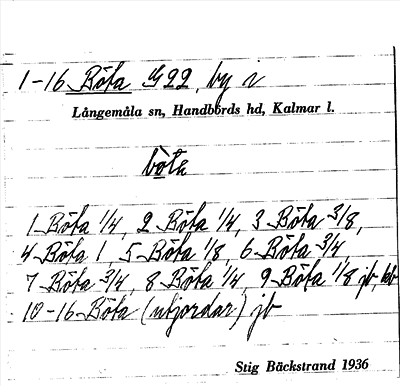 1-16 Böta G22, by i
Långemåla sn, Handbörds hd, Kalmar l.
bö̀ta
1 Böta 1/4, 2 Böta 1/4, 3 Böta 3/8,
4 Böta 1 5 Böta 1/8, 6 Böta 3/4,
7 Böta 3/4, 8 Böta 1/4, 9 Böta 1/8 jb, kb
10-16 Böta (utjordar) jb
Stig Bäckstrand 1936